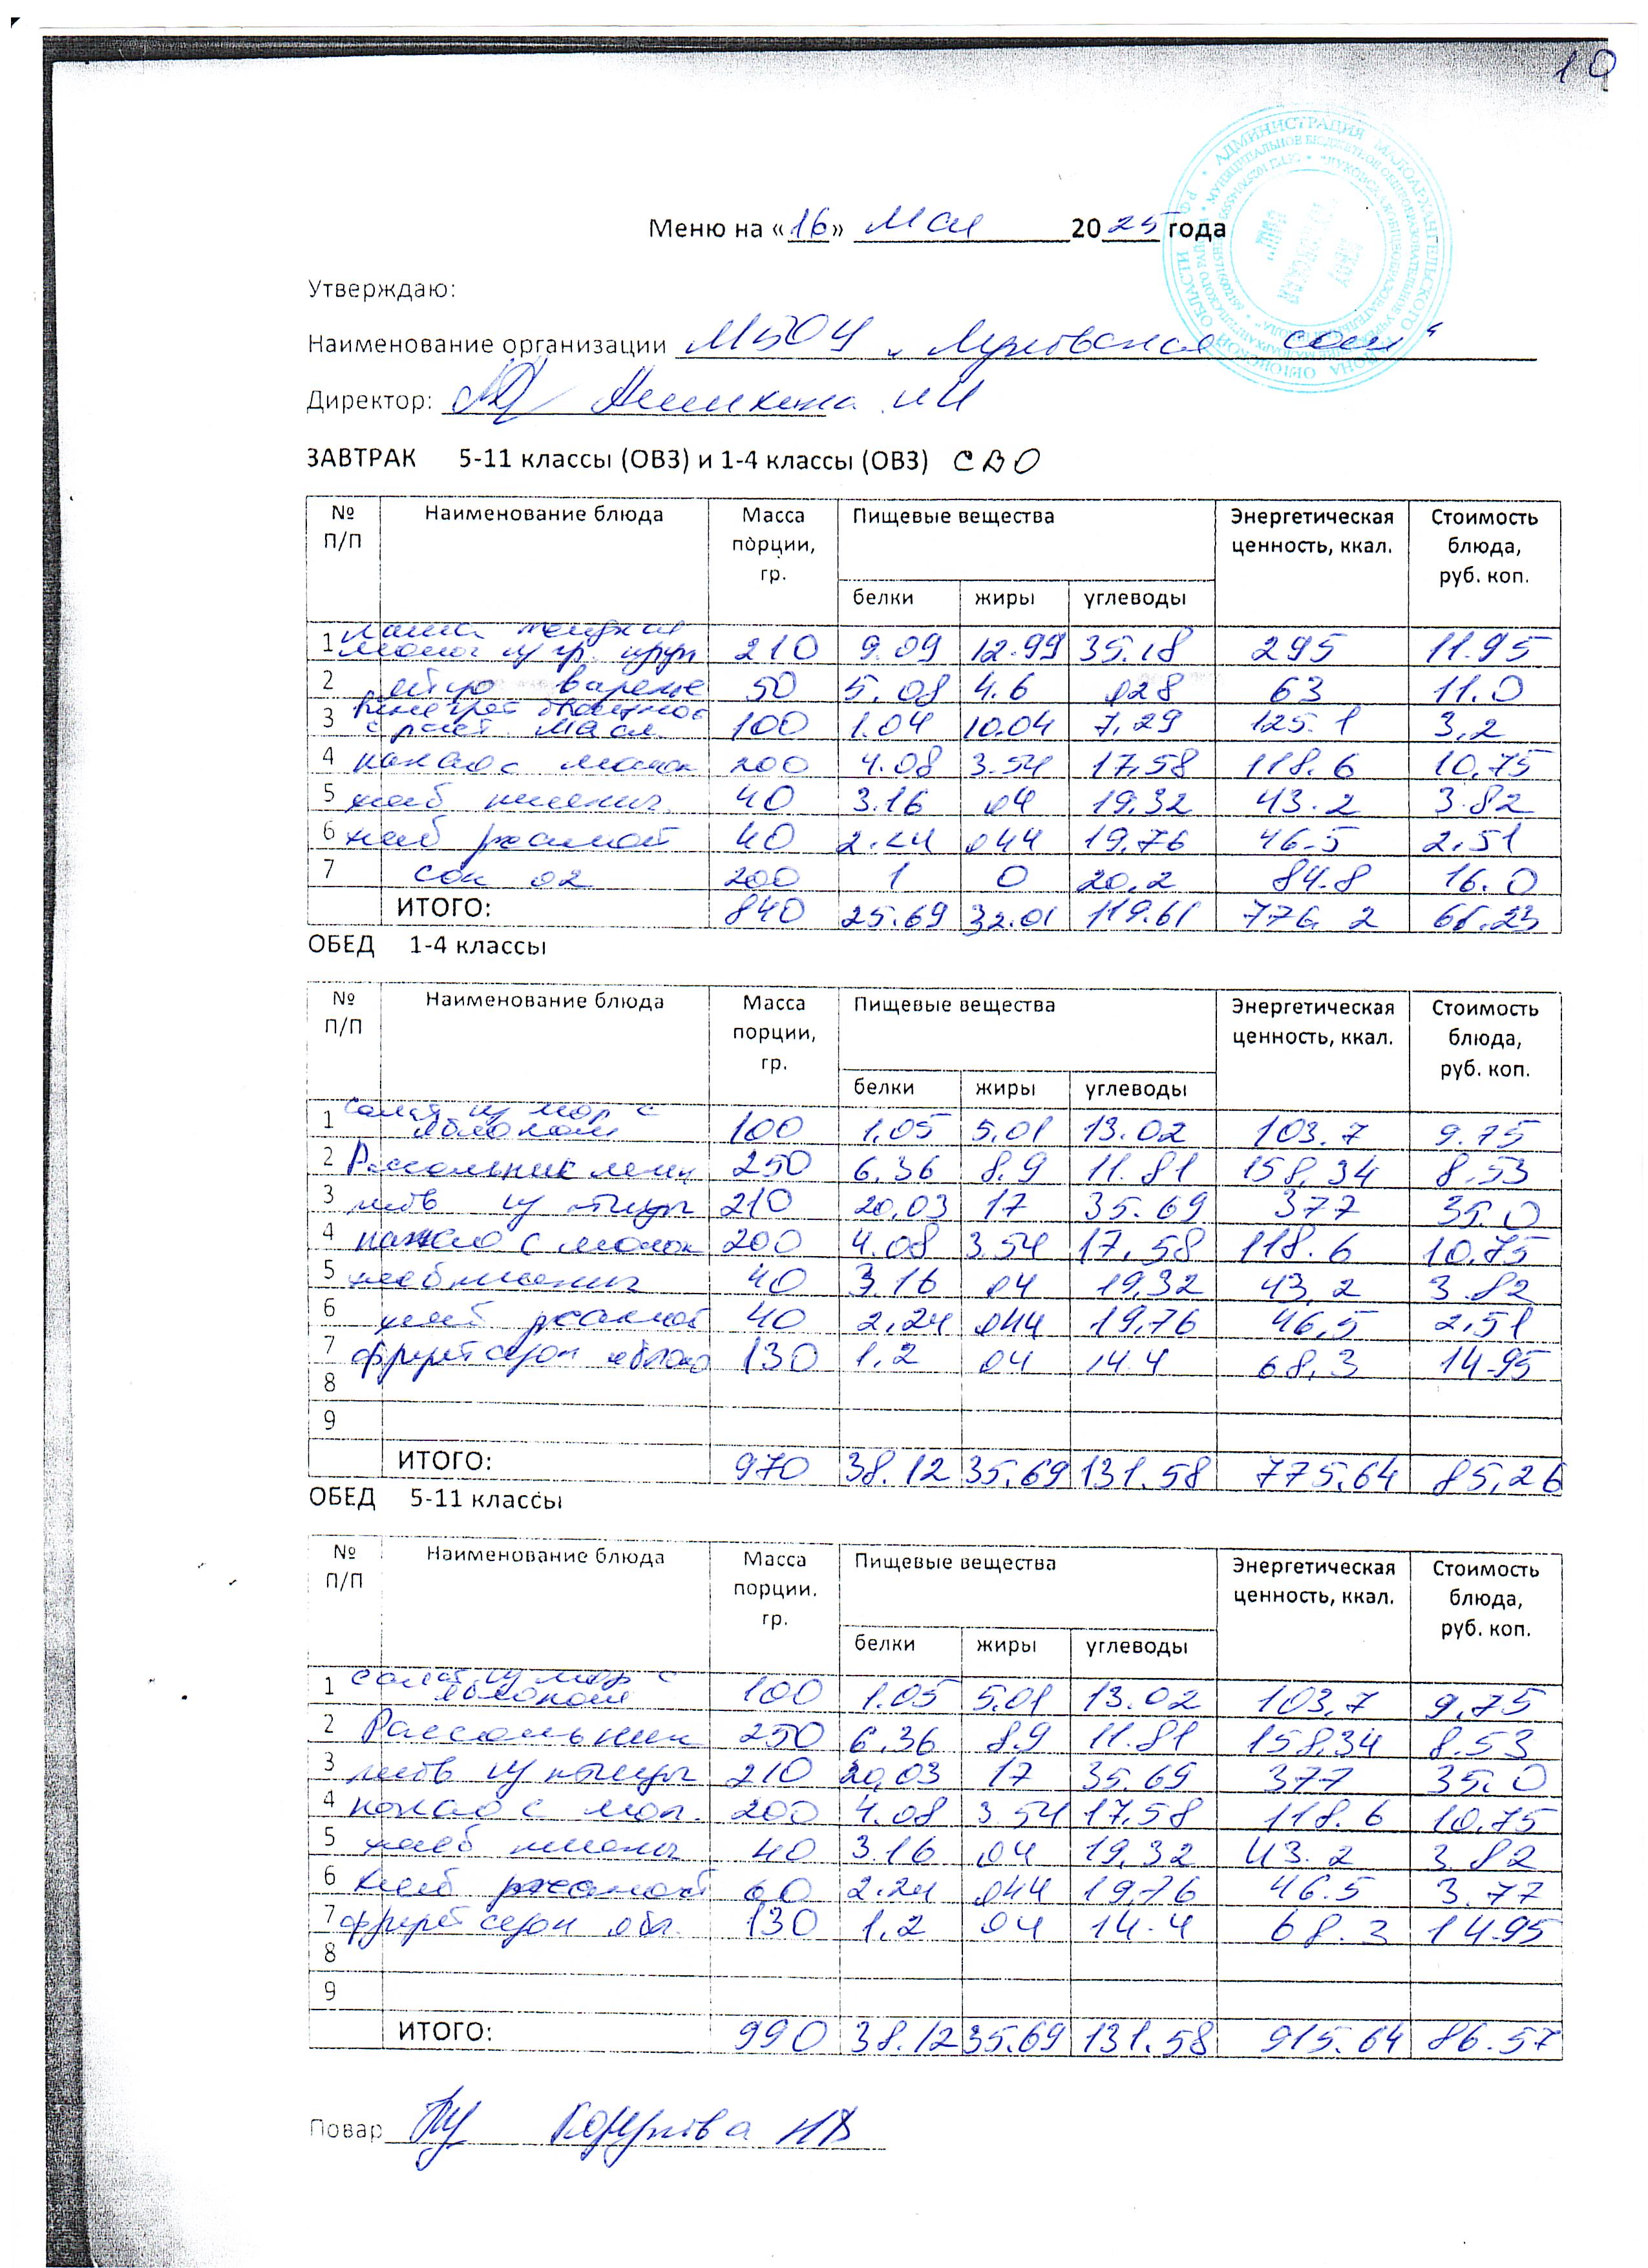 10
Меню на «16» Мая 2025 года
Утверждаю:
Наименование организации МБОУ „Луковская сош“
Директор: И И
ЗАВТРАК 5-11 классы (ОВЗ) и 1-4 классы (ОВЗ) СВО
№ П/П Наименование блюда Масса порции, гр. Пищевые вещества Энергетическая ценность, ккал. Стоимость блюда, руб. коп.
белки жиры углеводы
1 каша жидкая
молоч из гр. круп 210 9.09 12.99 35.18 295 11.95
2 яйцо варено 50 5.08 4.6 028 63 11.0
3 винегрет овощной
с раст. масл. 100 1.04 10.04 7,29 125.1 3,2
4 какао с молок 200 4.08 3.54 17,58 118.6 10,75
5 хлеб пшенич 40 3.16 04 19,32 43.2 3.82
6 хлеб ржаной 40 2.24 044 19,76 46.5 2,51
7 сок 02 200 1 0 20,2 84.8 16.0
ИТОГО: 840 25.69 32.01 119.61 776. 2
ОБЕД 1-4 классы
№ П/П Наименование блюда Масса порции, гр. Пищевые вещества Энергетическая ценность, ккал. Стоимость блюда, руб. коп.
белки жиры углеводы
1 Салат из мор с
яблоком 100 1,05 5,01 13.02 103.7 9.75
2 Рассольник лен 250 6,36 8,9 11.81 158,34 8,53
3 из птицы 210 20,03 17 35.69 377 35.0
4 какао с молок 200 4.08 3.54 17,58 118.6 10,75
5 хлеб пшенич 40 3.16 04 19,32 43,2 3.82
6 хлеб ржаной 40 2,24 044 19,76 46,5 2,51
7 фрукт сезон яблоко 130 1,2 04 14.4 68,3 14.95
8
9
ИТОГО: 970 38.12 35.69 131.58 775,64 85,26
ОБЕД 5-11 классы
№ П/П Наименование блюда Масса порции. гр. Пищевые вещества Энергетическая ценность, ккал. Стоимость блюда, руб. коп.
белки жиры углеводы
1 Салат из мор с
яблоком 100 1.05 5,01 13.02 103,7 9,75
2 Рассольник 250 6,36 8,9 11.81 158,34 8.53
3 из птицы 210 20,03 17 35.69 377 35.0
4 какао с мол. 200 4.08 3.54 17,58 118. 6 10,75
5 хлеб пшенич 40 3.16 04 19,32 43. 2 3 82
6 хлеб ржаной 60 2.24 044 19,76 46.5 3.77
7 фрукт сезон ябл. 130 1,2 04 14.4 68.3 14.95
8
9
ИТОГО: 990 38.12 35.69 131.58 915.64 86.57
Повар